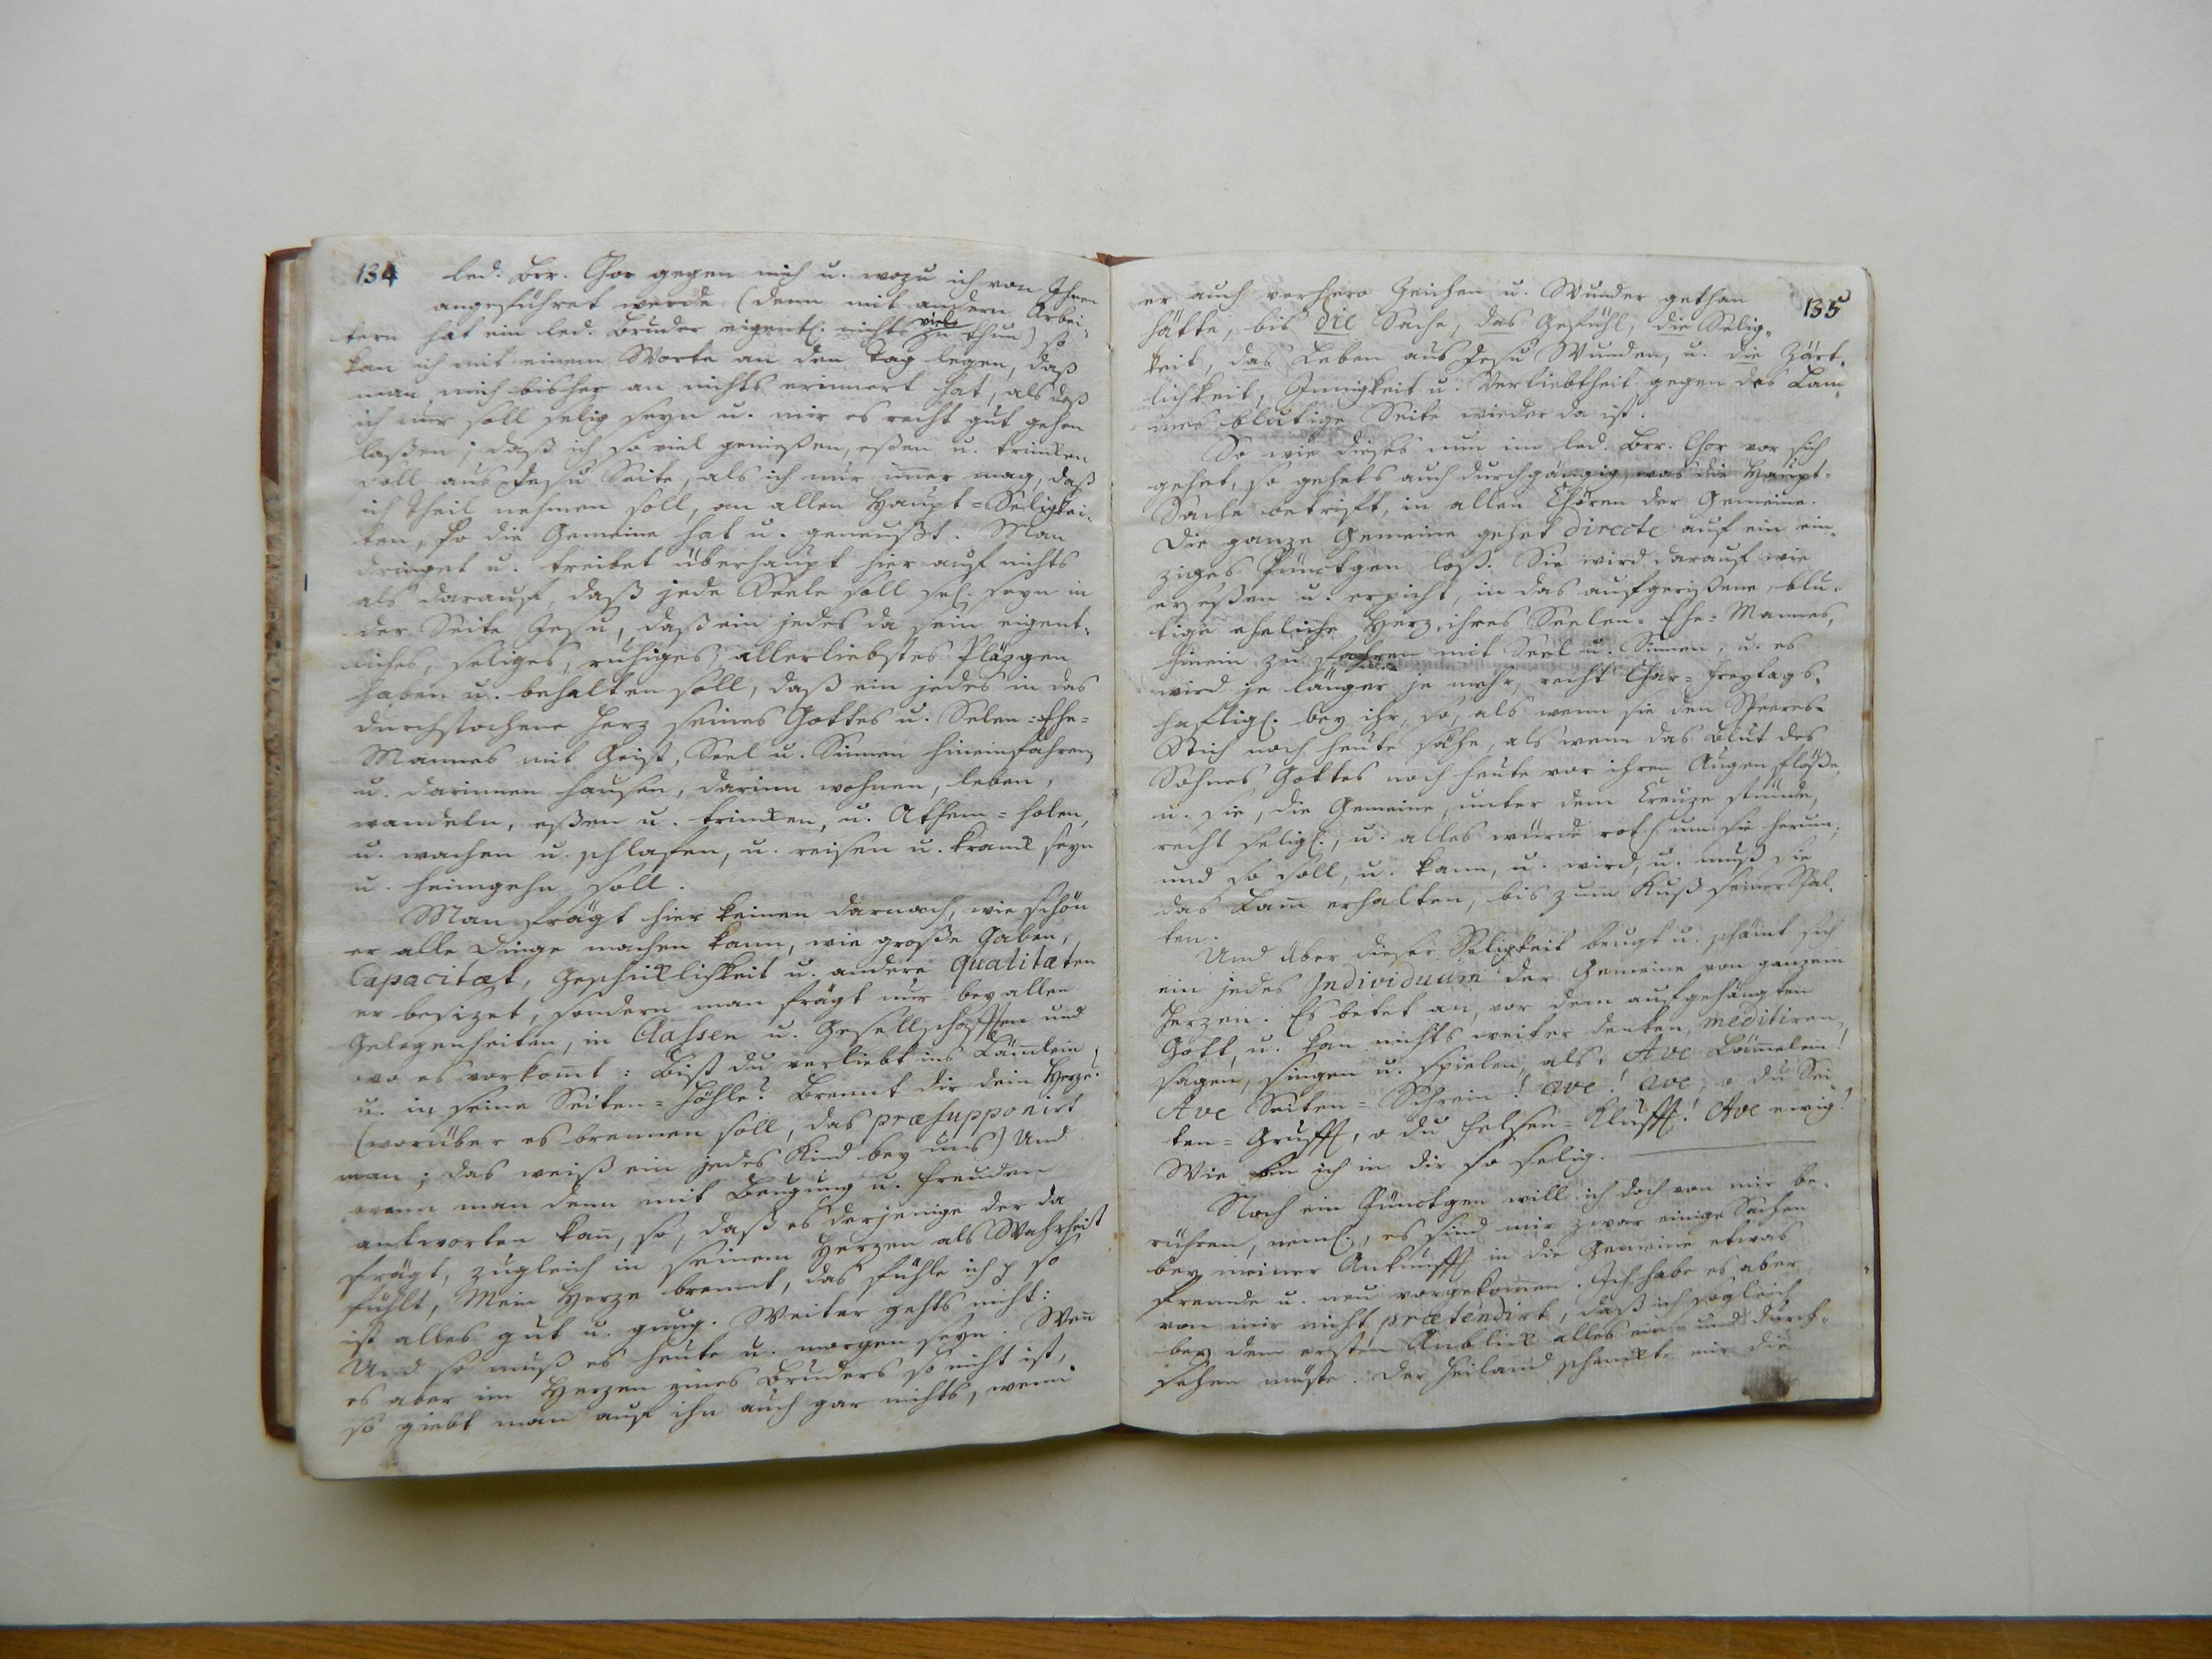 134
led. Brr. Chor gegen mich u. wozu ich von Ihnen
angeführet werde (denn mit andern Arbei-
tern hat ein led. Bruder eigentl. nichts viel zu thun) so
kan ich mit einem Worte an den Tag legen, daß
man mich bisher an nichts erinnert hat, als daß
ich nur soll selig seyn u. mir es recht gut gehen
laßen; daß ich so viel genießen, eßen u. trinken
soll aus Jesu Seite, als ich nur im̄er mag, daß
ich Theil nehmen soll, an allen Haupt=Seligkei-
ten, so die Gemeine hat u. geneußt. Man
dringet u. treibet überhaupt hier auf nichts
als darauf, daß jede Seele soll sel. seyn in
der Seite Jesu, daß ein jedes da sein eigent-
liches, seliges, ruhiges, allerliebstes Pläzgen
haben u. behalten soll, daß ein jedes in das
durchstochene Herz seines Gottes u. Selen=Ehe=
Mannes mit Geist, Seel u. Sinnen hineinfahren
u. darinnen hausen, darinn wohnen, leben,
wandeln, eßen u. trinken, u. Athem=holen,
u. wachen u. schlafen, u. reisen u. krank seyn
u. heimgehn soll.
Man frägt hier keinen darnach, wie schön
er alle Dinge machen kann, wie große Gaben,
Capacitæt, Geschiklichkeit u. andere qualitæten
er besizet, sondern man frägt nur bey allen
Gelegenheiten, in Classen u. Gesellschafften und
wo es vorkom̄t: Bist du verliebt ins Läm̄lein,
u. in seine Seiten=Höhle? Brennt dir dein Herze?
(worüber es brennen soll, das præsupponirt
man; das weiß ein jedes Kind bey uns) Und
wenn man denn mit Beugung u. Freuden
antworten kan̄, so, daß es derjenige der da
frägt, zugleich in seinem Herzen als Wahrheit
fühlt, Mein Herze brennt, das fühle ich p so
ist alles gut u. gnug. Weiter gehts nicht:
Und so muß es heute u. morgen seyn. Wen̄
es aber im Herzen eines Bruders so nicht ist,
so giebt man auf ihn auch gar nichts, wenn
135
er auch vorhero Zeichen u. Wunder gethan
hätte, bis die Sache, das Gefühl, die Selig-
keit, das Leben aus Jesu Wunden, u. die Zärt-
lichkeit, Innigkeit u. Verliebtheit gegen des Lam-
mes blutige Seite wieder da ist.
So wie dieses nun im led. Brr. Chor vor sich
gehet, so gehets auch durchgängig, was die Haupt-
Sache betrifft, in allen Chören der Gemeine.
Die ganze Gemeine gehet directe auf ein ein-
ziges Pünctgen loß. Sie wird darauf wie
erseßen u. erpicht, in das aufgerißene, blu-
tige eheliche Herz, ihres Seelen=Ehe=Mannes,
hinein zu fahren mit Seel u. Sinnen, u. es
wird je länger je mehr, recht Char=Freytags-
hafftigl. bey ihr, so, als wenn sie den Speeres-
Stich noch heute sähe, als wenn das Blut des
Sohnes Gottes noch heute vor ihren Augen flöße,
u. sie, die Gemeine, unter dem Creuze stünde,
recht seligl., u. alles würde roth um sie herum;
und so soll, u. kann, u. wird, u. muß sie
das Lam̄ erhalten, bis zum Kuß seiner Spal-
ten.
Und über dieser Seligkeit beugt u. schämt sich
ein jedes Individuum der Gemeine von ganzem
Herzen. Es betet an, vor dem aufgehängten
Gott, u. kan nichts weiter denken, meditiren,
sagen, singen u. spielen, als: Ave Läm̄elein!
Ave Seiten=Schrein! Ave! Ave, o du Sei-
ten=Grufft, o du Felsen=Klufft! Ave ewig!
Wie bin ich in dir so selig.
Noch ein Pünctgen will ich doch von mir be-
rühren, neml., es sind mir zwar einige Sachen
bey meiner Ankunfft in die Gemeine etwas
fremde u. neu vorgekom̄en. Ich habe es aber
von mir nicht prætendirt, daß ich sogleich
bey dem ersten Anblick alles ein= und durch-
sehen müste. Der Heiland schenkte mir die